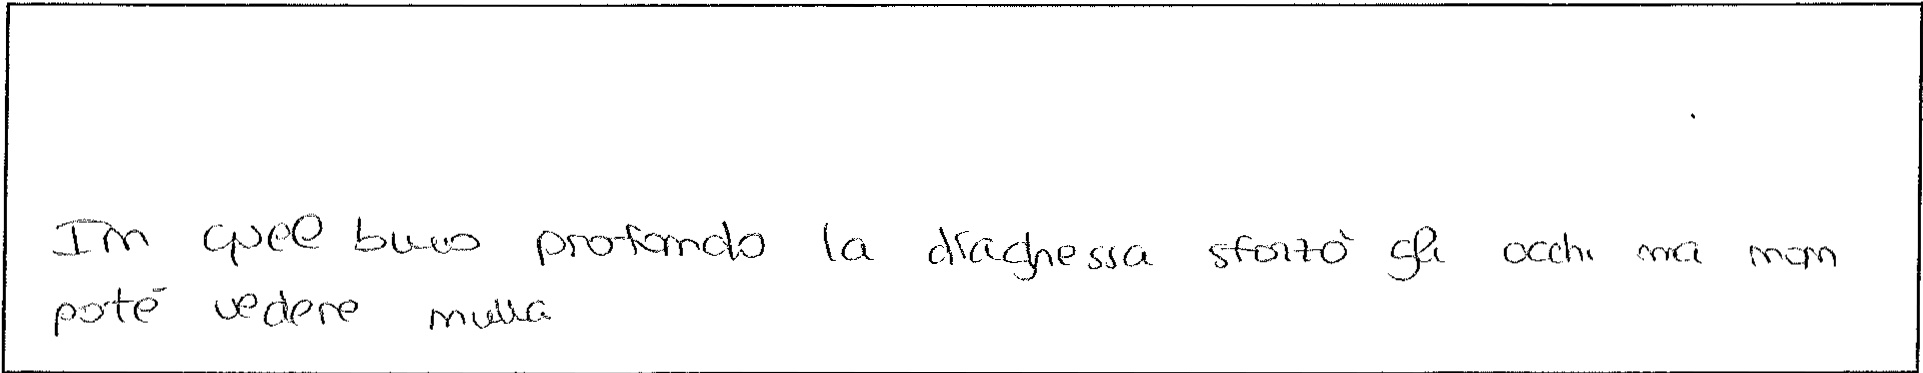 In quel buco profondo la draghessa sforzò gli occhi ma non
poté vedere nulla